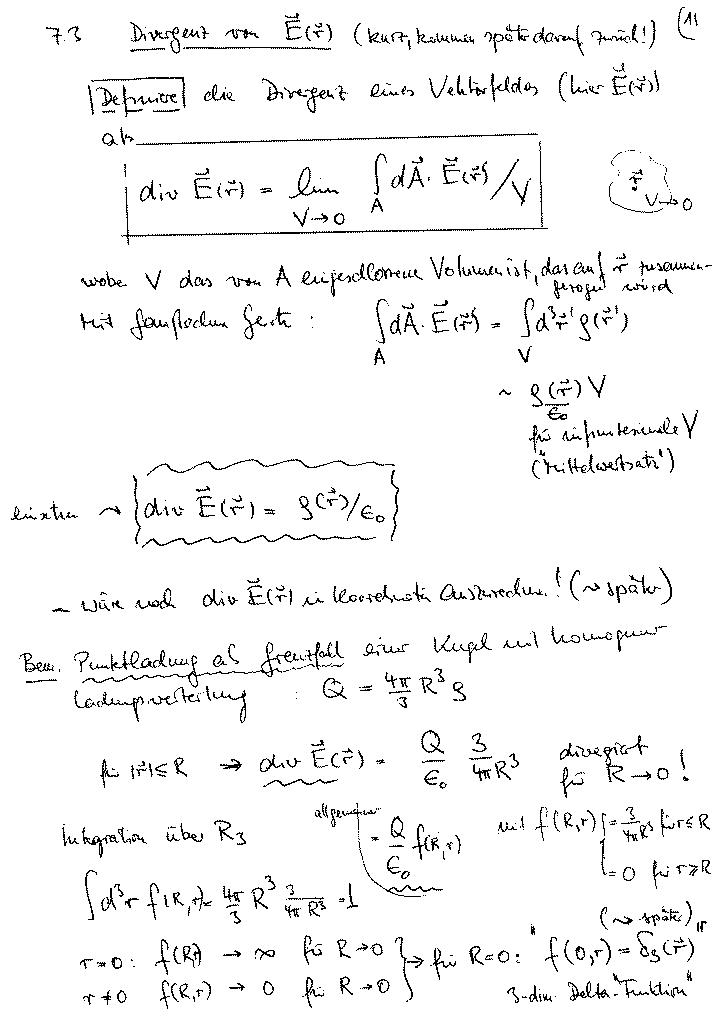 7.3 Divergenz von E⃗(r⃗) (kurz, kommen später darauf zurück!) (11
Definiere die Divergenz eines Vektorfeldes (hier E⃗(r⃗))
als
div E⃗(r⃗) = lim_{V→0} ∫_A dA⃗ · E⃗(r⃗) / V
r⃗ V→0
wobei V das von A eingeschlossene Volumen ist, das auf r⃗ zusammen-
gezogen wird
Mit Gaußschem Gesetz : ∫_A dA⃗ · E⃗(r⃗) = ∫_V d³r⃗' ρ(r⃗')
~ ρ(r⃗)/ε₀ V
für infinitesimale V
("Mittelwertsatz")
einsetzen ⇝ div E⃗(r⃗) = ρ(r⃗)/ε₀
– wäre noch div E⃗(r⃗) in Koordinaten auszurechnen! (⇝ später)
Bem. Punktladung als Grenzfall einer Kugel mit homogener
Ladungsverteilung : Q = 4π/3 R³ ρ
für |r⃗| ≤ R → div E⃗(r⃗) = Q/ε₀ 3/4πR³ divergiert
für R→0 !
allgemeiner = Q/ε₀ f(R,r) mit f(R,r) { = 3/4πR³ für r≤R
= 0 für r≥R
Integration über R₃
∫d³r f(R,r) = 4π/3 R³ 3/4πR³ = 1
(⇝ später)
r=0 : f(R,r) → ∞ für R→0
r≠0 f(R,r) → 0 für R→0 } → für R=0 : "f(0,r) = δ₃(r⃗)"
3-dim. Delta-"Funktion"